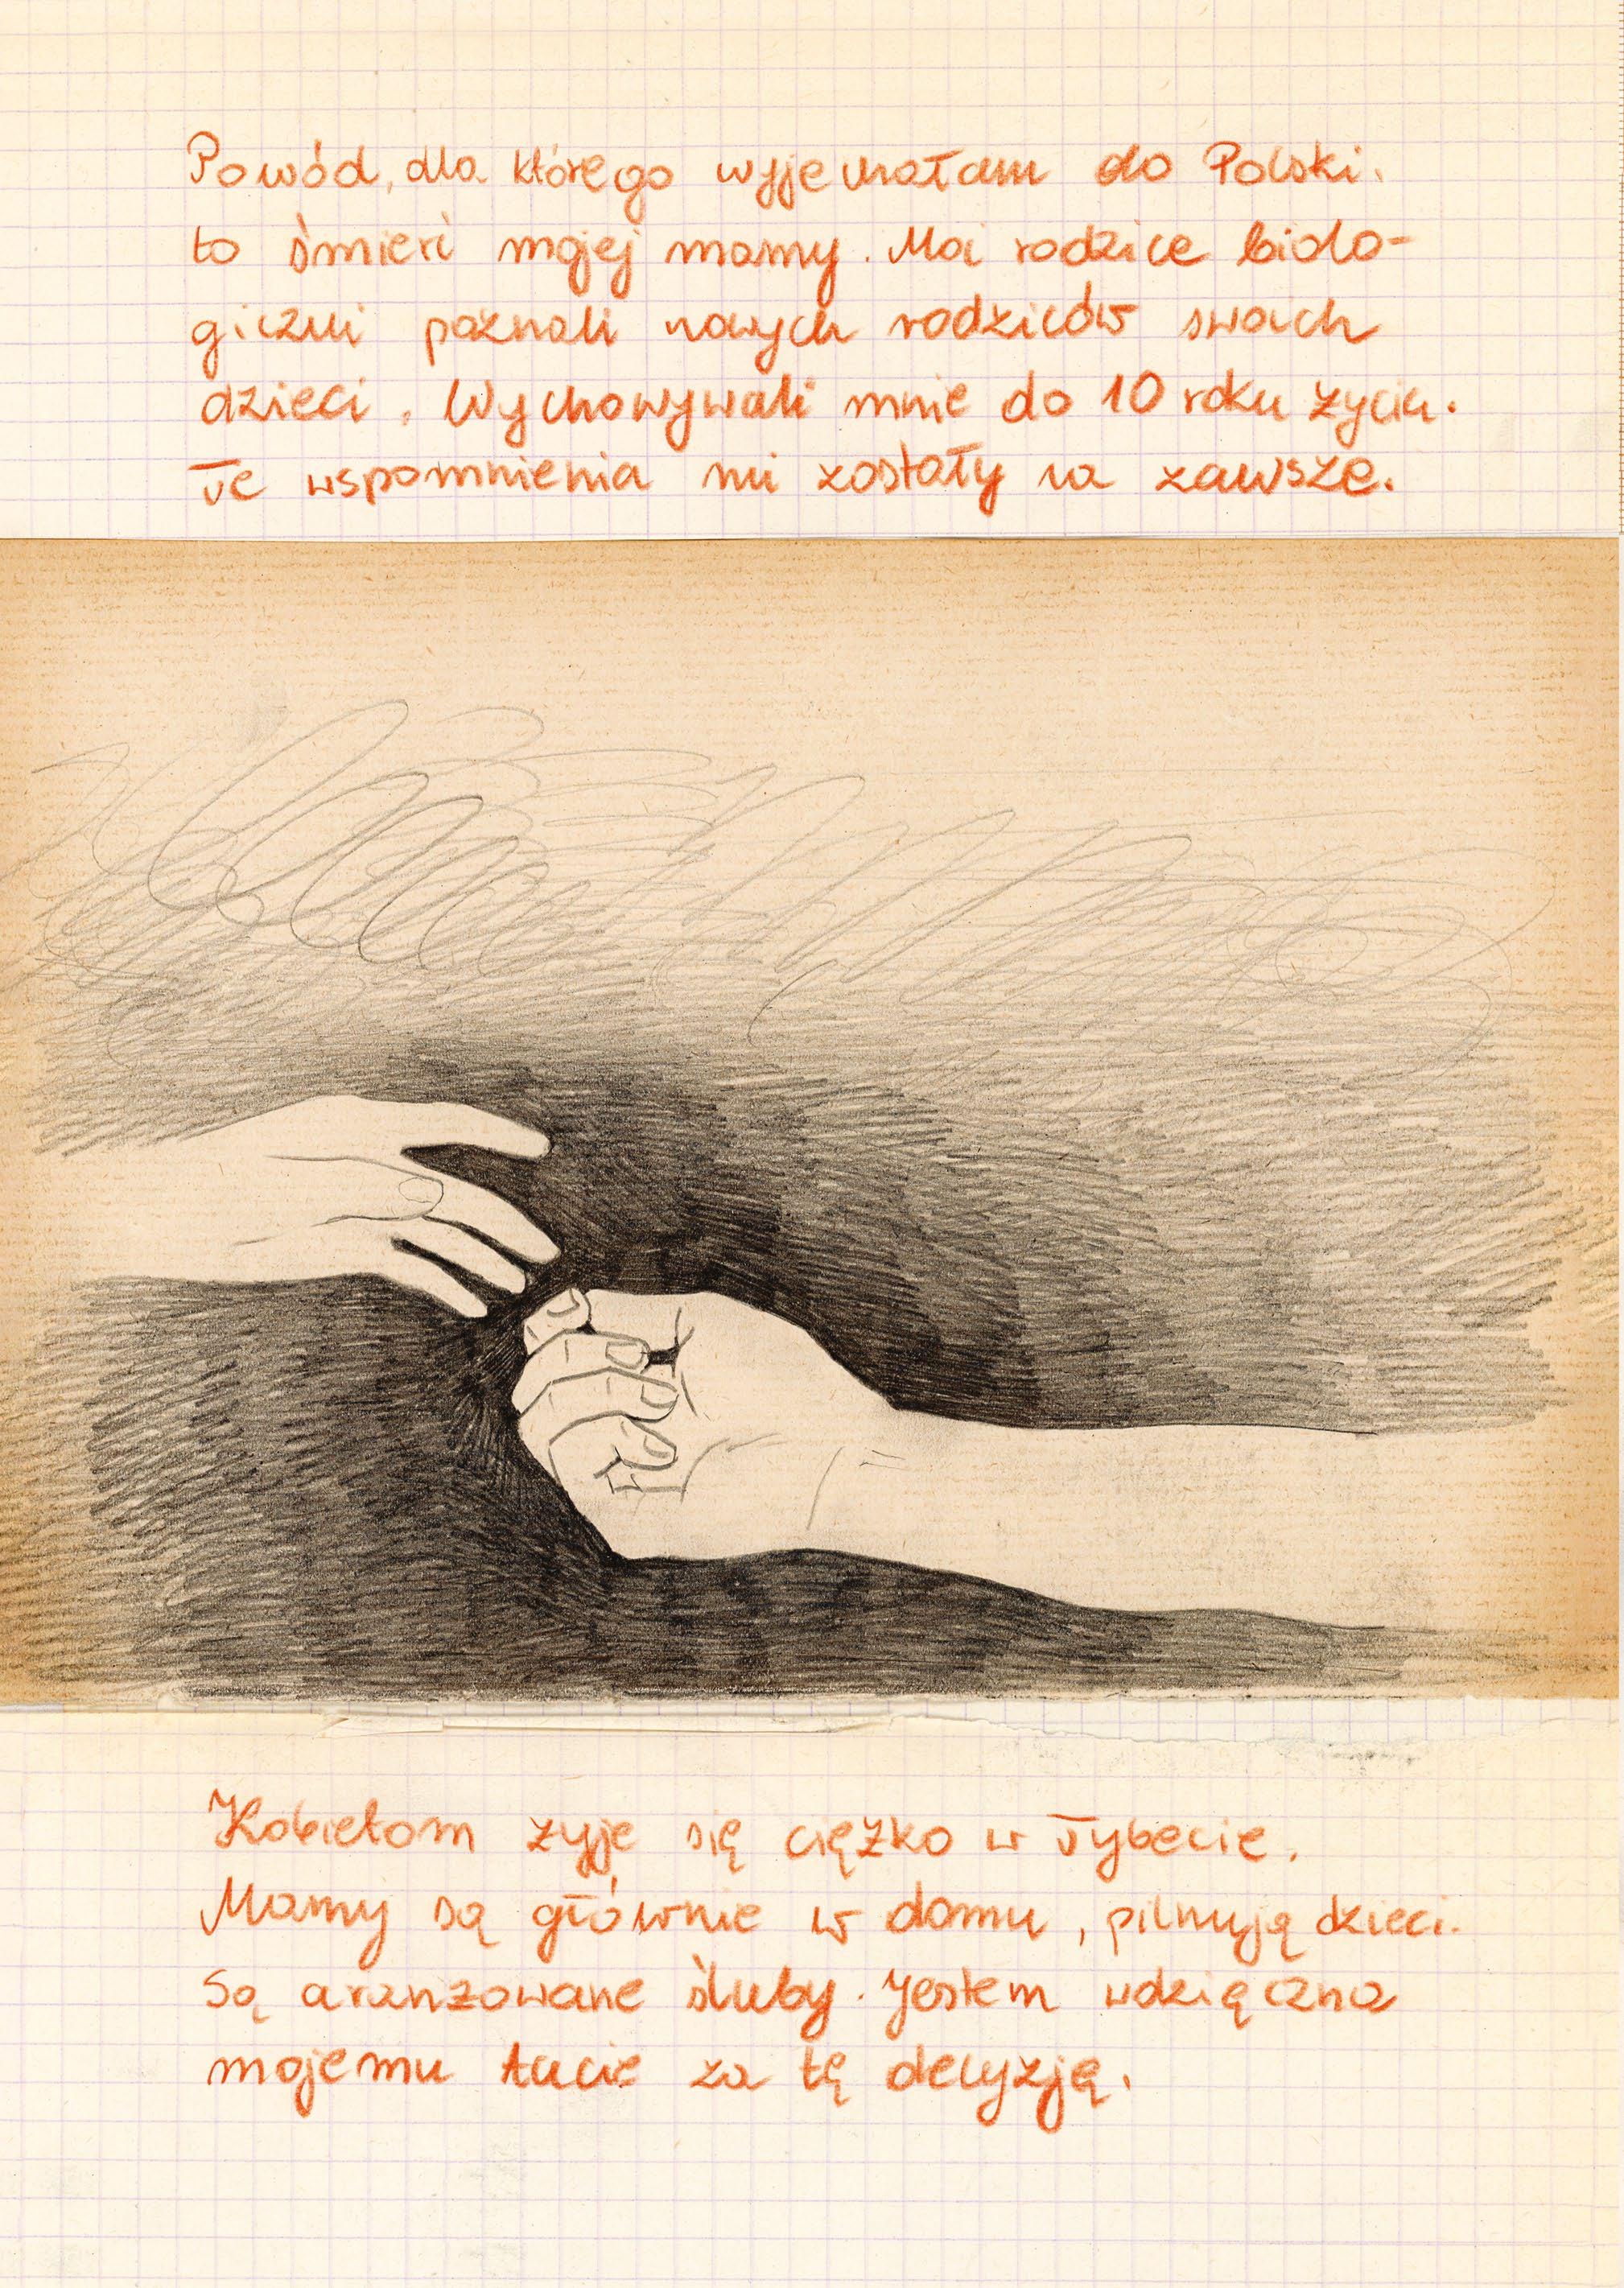 Powód, dla którego wyjechałam do Polski.
to śmierć mojej mamy. Moi rodzice biolo-
giczni poznali nowych rodziców swoich
dzieci. Wychowywali mnie do 10 roku życia.
Te wspomnienia mi zostały na zawsze.
Kobietom żyje się ciężko w Tybecie.
Mamy są głównie w domu, pilnują dzieci.
Są aranżowane śluby. Jestem wdzięczna
mojemu tacie za tę decyzją.